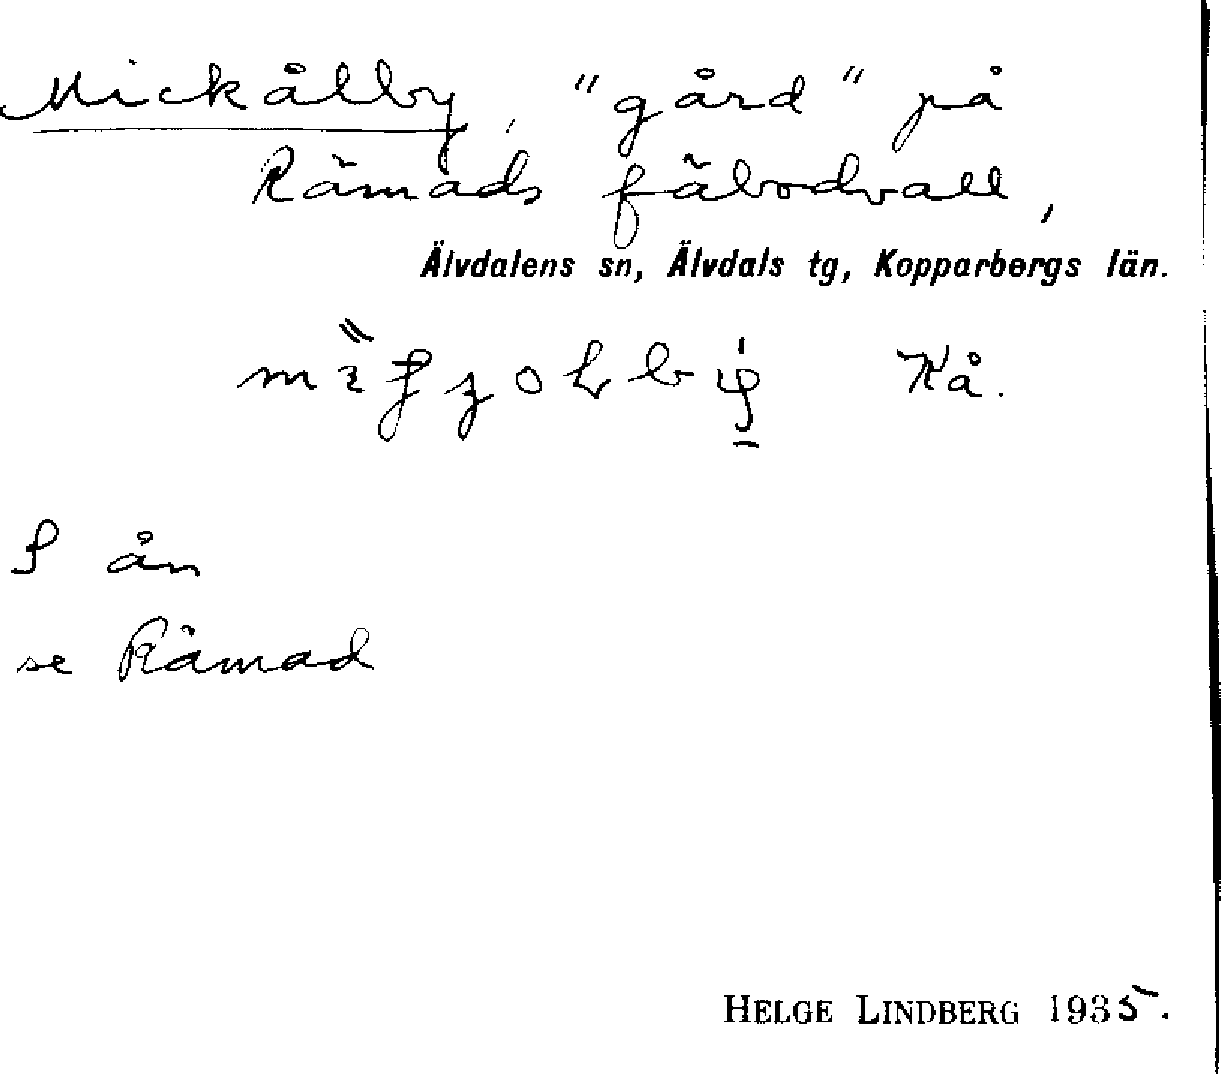 Mickålby, "gård" på
Råmads fäbodvall,
Älvdalens sn, Älvdals tg, Kopparbergs län.
Kå.
S ån
se Råmad
HELGE LINDBERG 1935.